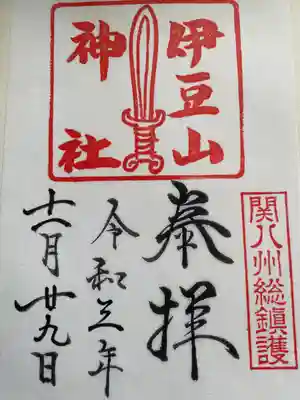 伊豆山
神社
関八州総鎮護
奉拝
令和三年
十一月廿九日